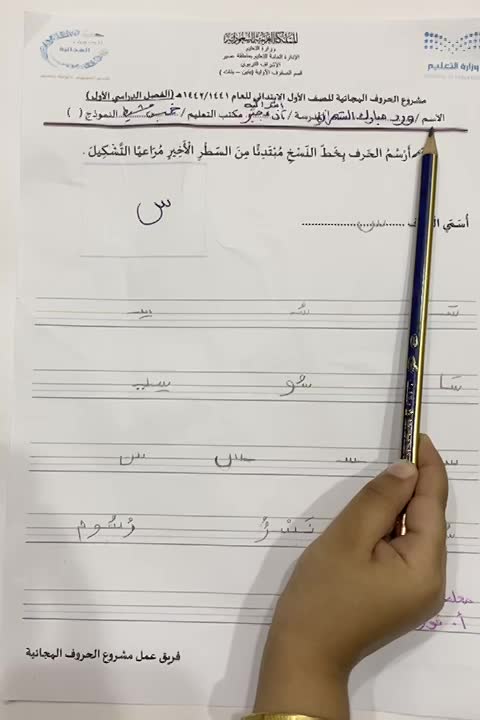 المملكة العربية السعودية
وزارة التعليم
الإدارة العامة للتعليم بمنطقة عسير
الإشراف التربوي
قسم الصفوف الأولية (بنين - بنات)
وزارة التعليم
الهجائية
مشروع الحروف الهجائية للصف الأول الابتدائي للعام ١٤٤٢/١٤٤١هـ (الفصل الدراسي الأول)
ابتدائية
الاسم / ورد مبارك المدرسة / مكتب التعليم / خميس مشيط النموذج ( )
أَرْسُمُ الحَرفَ بِخَطِّ النَّسْخِ مُبْتَدِئًا مِنَ السَّطْرِ الْأَخِيرِ مُرَاعِيًا التَّشْكِيلَ .
س
أُسَمِّي
سَـ سُـ سِـ
سَا سُو سِيـ
سـ ـسـ ـس س
نَسْرُ رُسُوم
فريق عمل مشروع الحروف الهجائية